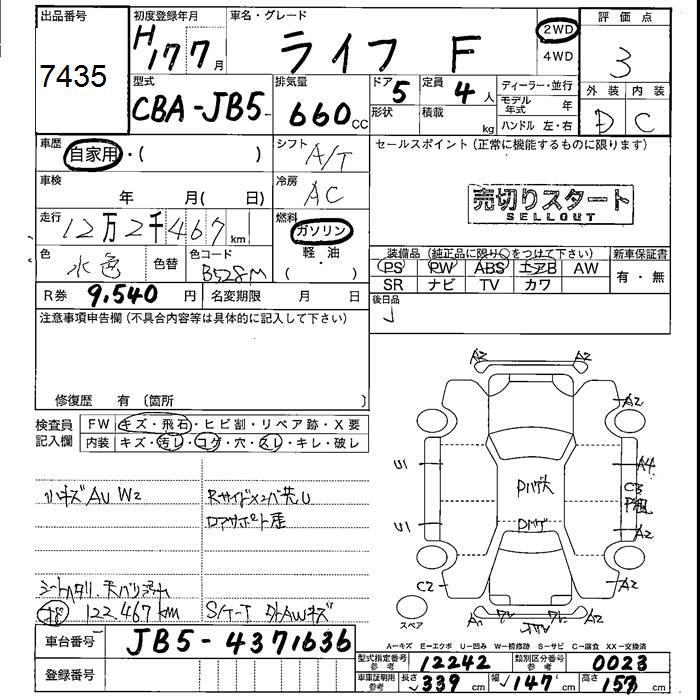 出品番号
7435
初度登録年月
H17 7月
車名・グレード
ライフ F
2WD
4WD
評価点
3
外装 内装
D C
型式
CBA-JB5
排気量
660cc
ドア 5
形状
定員 4人
積載 kg
ディーラー・並行
モデル年式 年
ハンドル 左・右
車歴
自家用・( )
シフト
A/T
セールスポイント(正常に機能するものに限ります)
車検
年 月( 日)
冷房
AC
売切りスタート
SELLOUT
走行
12万2千467km
燃料
ガソリン
軽・油
( )
色
水色
色替
色コード
B528M
装備品(純正品に限り○をつけて下さい)
新車保証書
PS PW ABS エアB AW
SR ナビ TV カワ
有・無
R券 9,540円
名変期限 月 日
後日品
注意事項申告欄(不具合内容等は具体的に記入して下さい)
修復歴 有〔箇所 〕
検査員記入欄
FW キズ・飛石・ヒビ割・リペア跡・X要
内装 キズ・汚レ・コゲ・穴・スレ・キレ・破レ
小キズAU W2
ロアサポート歪
122,467km
車台番号
JB5-4371636
登録番号
A2 A2
A2
U1 A4
C3
U1 A2
C2 A2
スペア
A-キズ E-エクボ U-凹み W-補修跡 S-サビ C-腐食 XX-交換済
型式指定番号参考 12242
類別区分番号参考 0023
車庫証明用参考 長さ 339cm 幅 147cm 高さ 157cm